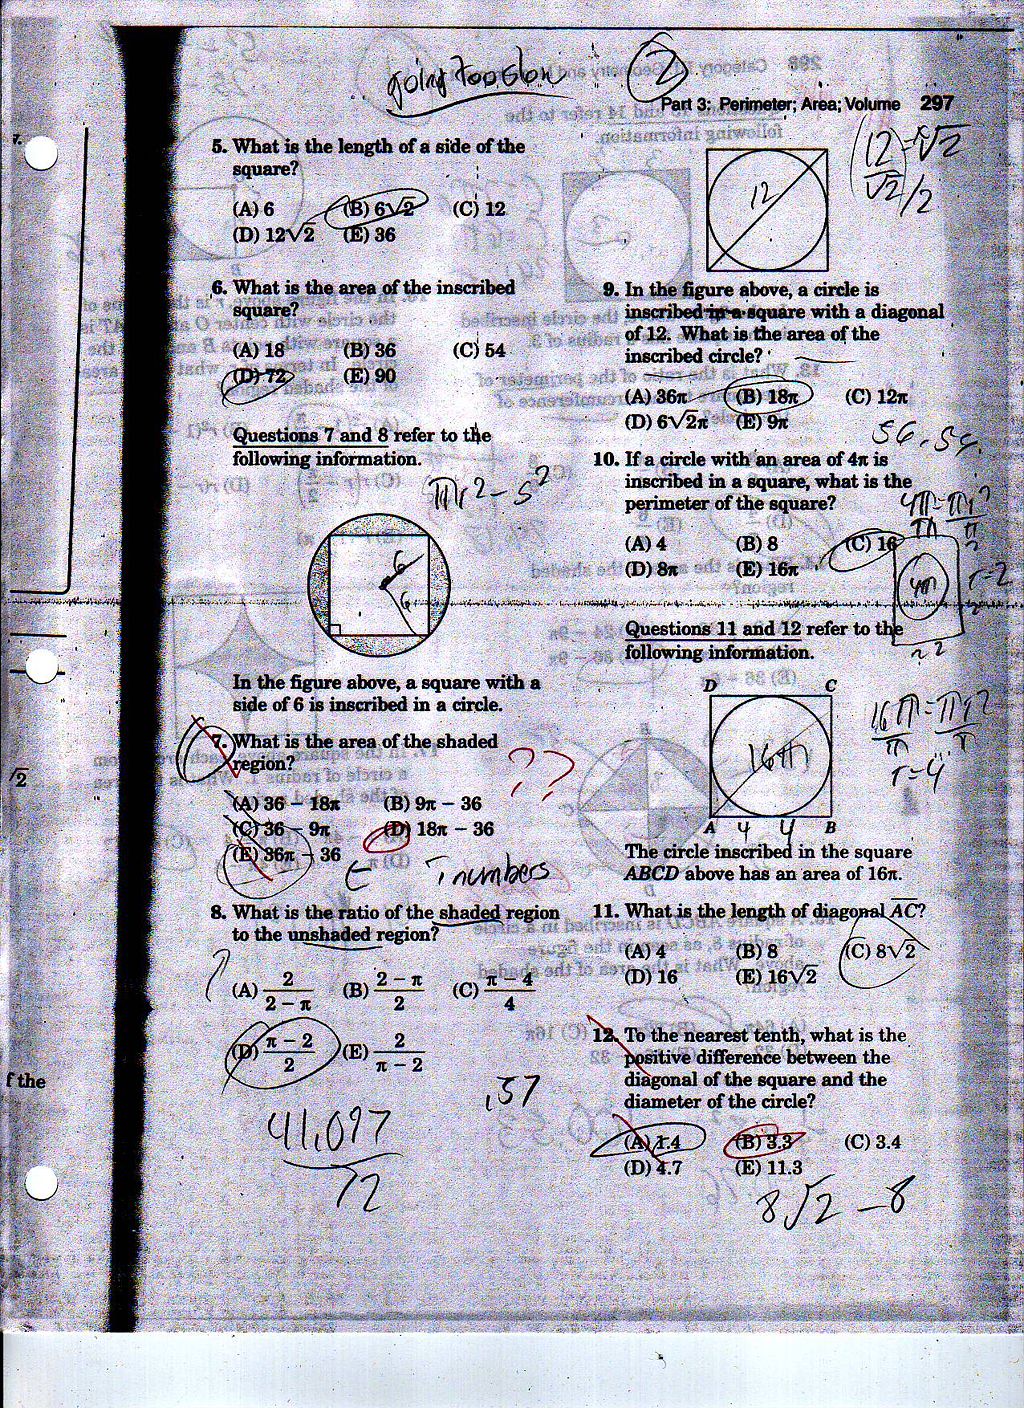 going too slow
2
Part 3: Perimeter; Area; Volume 297
7.
5. What is the length of a side of the
square?
(A) 6 (B) 6√2 (C) 12
(D) 12√2 (E) 36
6. What is the area of the inscribed
square?
(A) 18 (B) 36 (C) 54
(D) 72 (E) 90
Questions 7 and 8 refer to the
following information.
πr² - s²
6
6
In the figure above, a square with a
side of 6 is inscribed in a circle.
7. What is the area of the shaded
region?
??
(A) 36 − 18π (B) 9π − 36
(C) 36 − 9π (D) 18π − 36
(E) 36π − 36
numbers
8. What is the ratio of the shaded region
to the unshaded region?
(A) 2/(2 − π) (B) (2 − π)/2 (C) (π − 4)/4
(D) (π − 2)/2 (E) 2/(π − 2)
.57
41.097
72
√2
f the
12
12/√2 = √2
/2
9. In the figure above, a circle is
inscribed in a square with a diagonal
of 12. What is the area of the
inscribed circle?
(A) 36π (B) 18π (C) 12π
(D) 6√2π (E) 9π
56.54
10. If a circle with an area of 4π is
inscribed in a square, what is the
perimeter of the square?
4π = πr²
π π
(A) 4 (B) 8 (C) 16
(D) 8π (E) 16π
4π
r=2
Questions 11 and 12 refer to the
following information.
D C
16π
A 4 4 B
16π = πr²
π π
r=4
The circle inscribed in the square
ABCD above has an area of 16π.
11. What is the length of diagonal AC?
(A) 4 (B) 8 (C) 8√2
(D) 16 (E) 16√2
12. To the nearest tenth, what is the
positive difference between the
diagonal of the square and the
diameter of the circle?
(A) 1.4 (B) 3.3 (C) 3.4
(D) 4.7 (E) 11.3
8√2 - 8